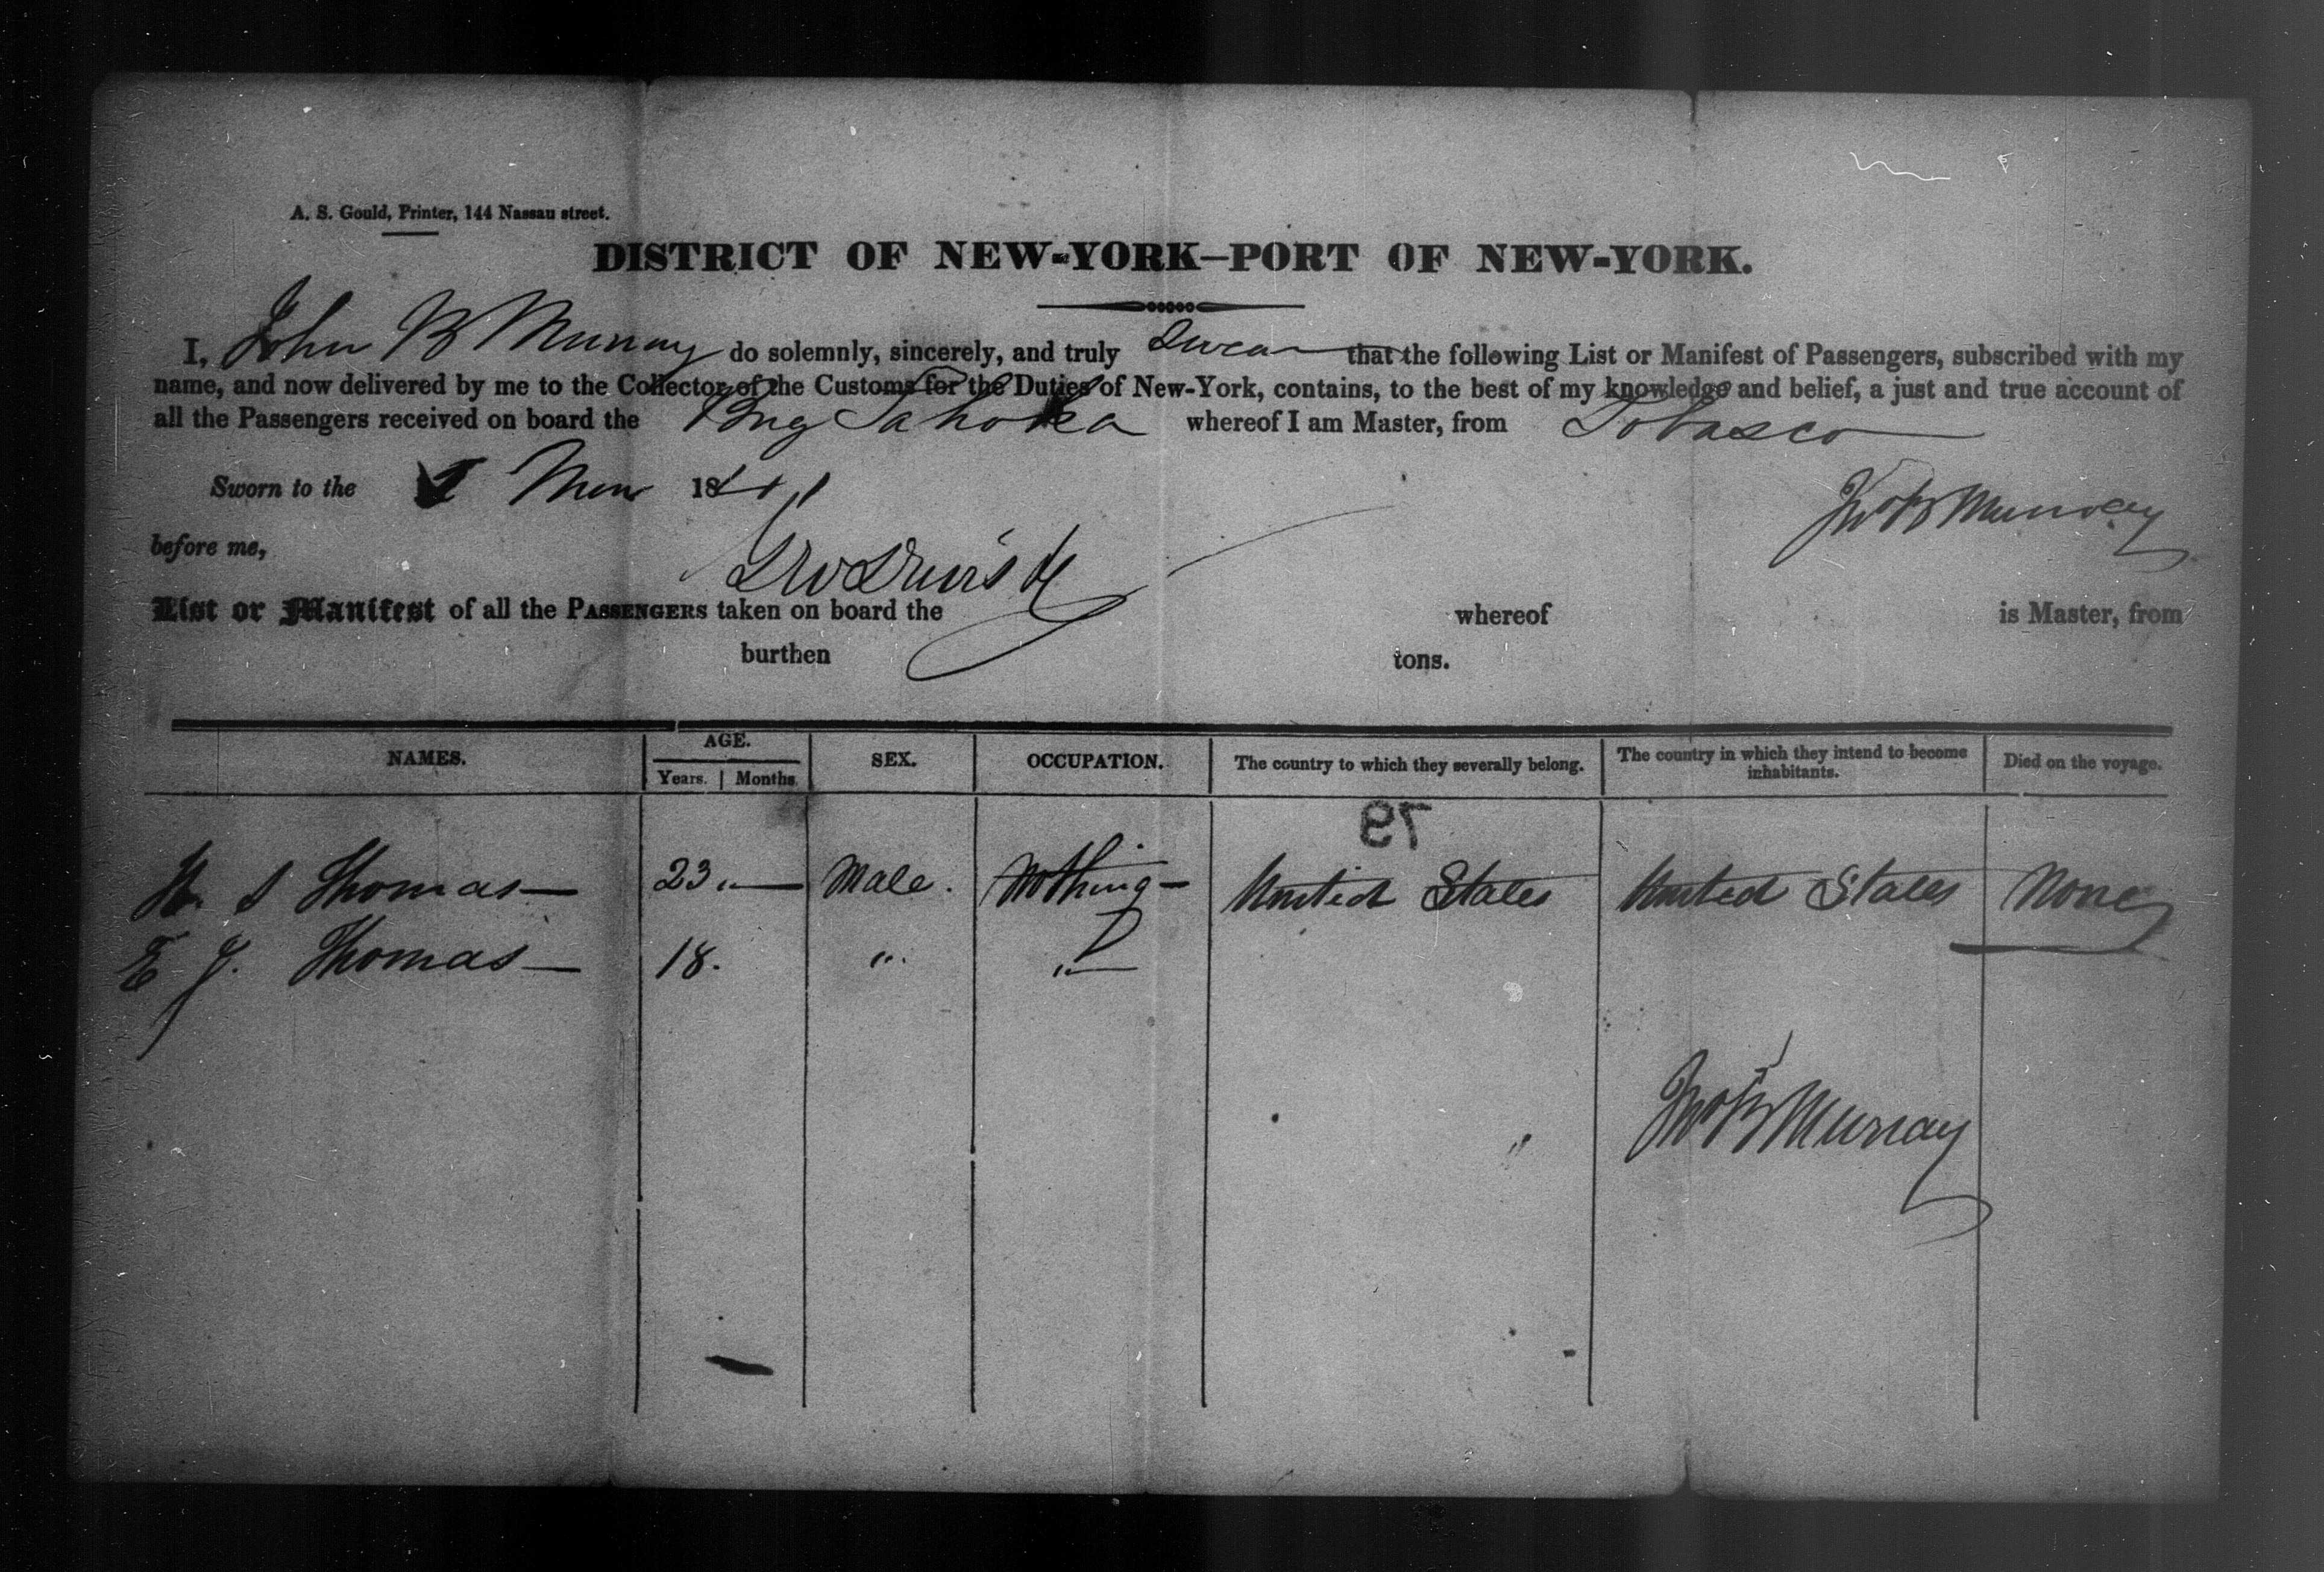 A. S. Gould, Printer, 144 Nassau street.
DISTRICT OF NEW-YORK—PORT OF NEW-YORK.
I, John B Murray do solemnly, sincerely, and truly Swear that the following List or Manifest of Passengers, subscribed with my
name, and now delivered by me to the Collector of the Customs for the Duties of New-York, contains, to the best of my knowledge and belief, a just and true account of
all the Passengers received on board the Brig whereof I am Master, from Tobasco
Sworn to the 1841
Jno B Murray
before me,
List or Manifest of all the PASSENGERS taken on board the whereof is Master, from
burthen tons.
NAMES. AGE. Years. Months. SEX. OCCUPATION. The country to which they severally belong. The country in which they intend to become inhabitants. Died on the voyage.
79
S Thomas— 23 "— Male. Nothing— United States United States None
E J. Thomas— 18. " "—
Jno B Murray